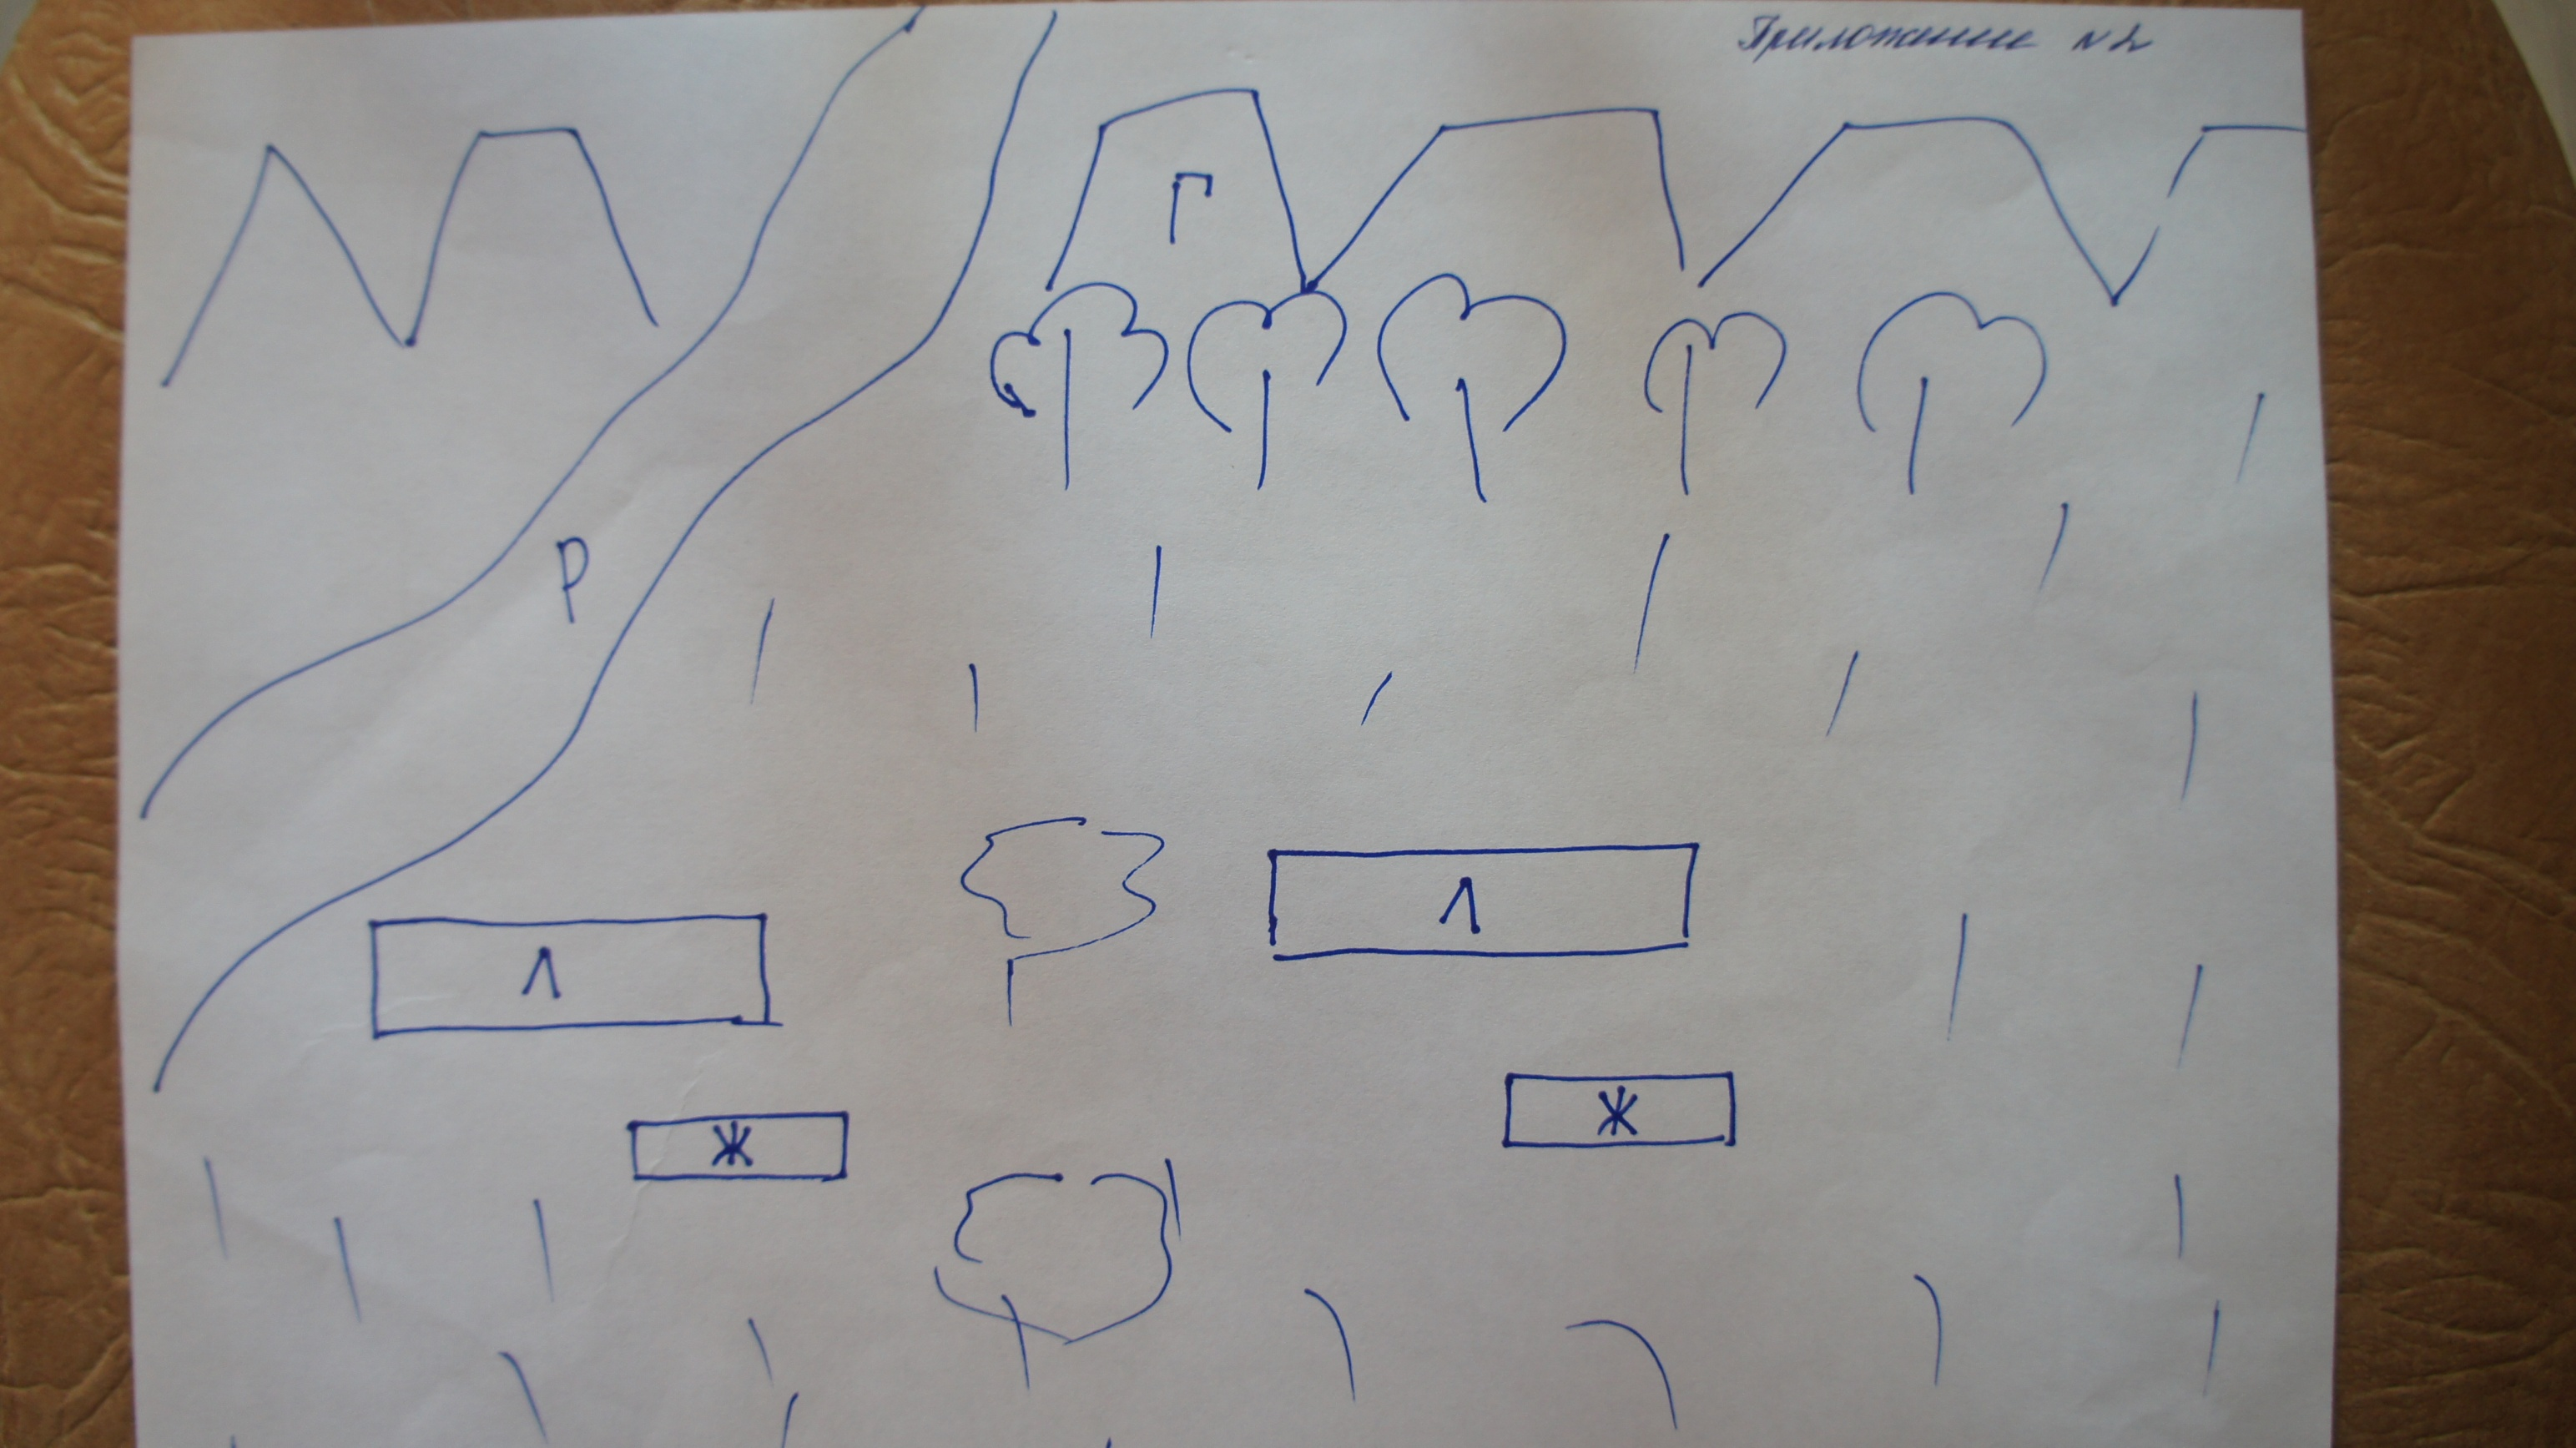 Приложение №2
Г
Р
Л
Л
Ж
Ж